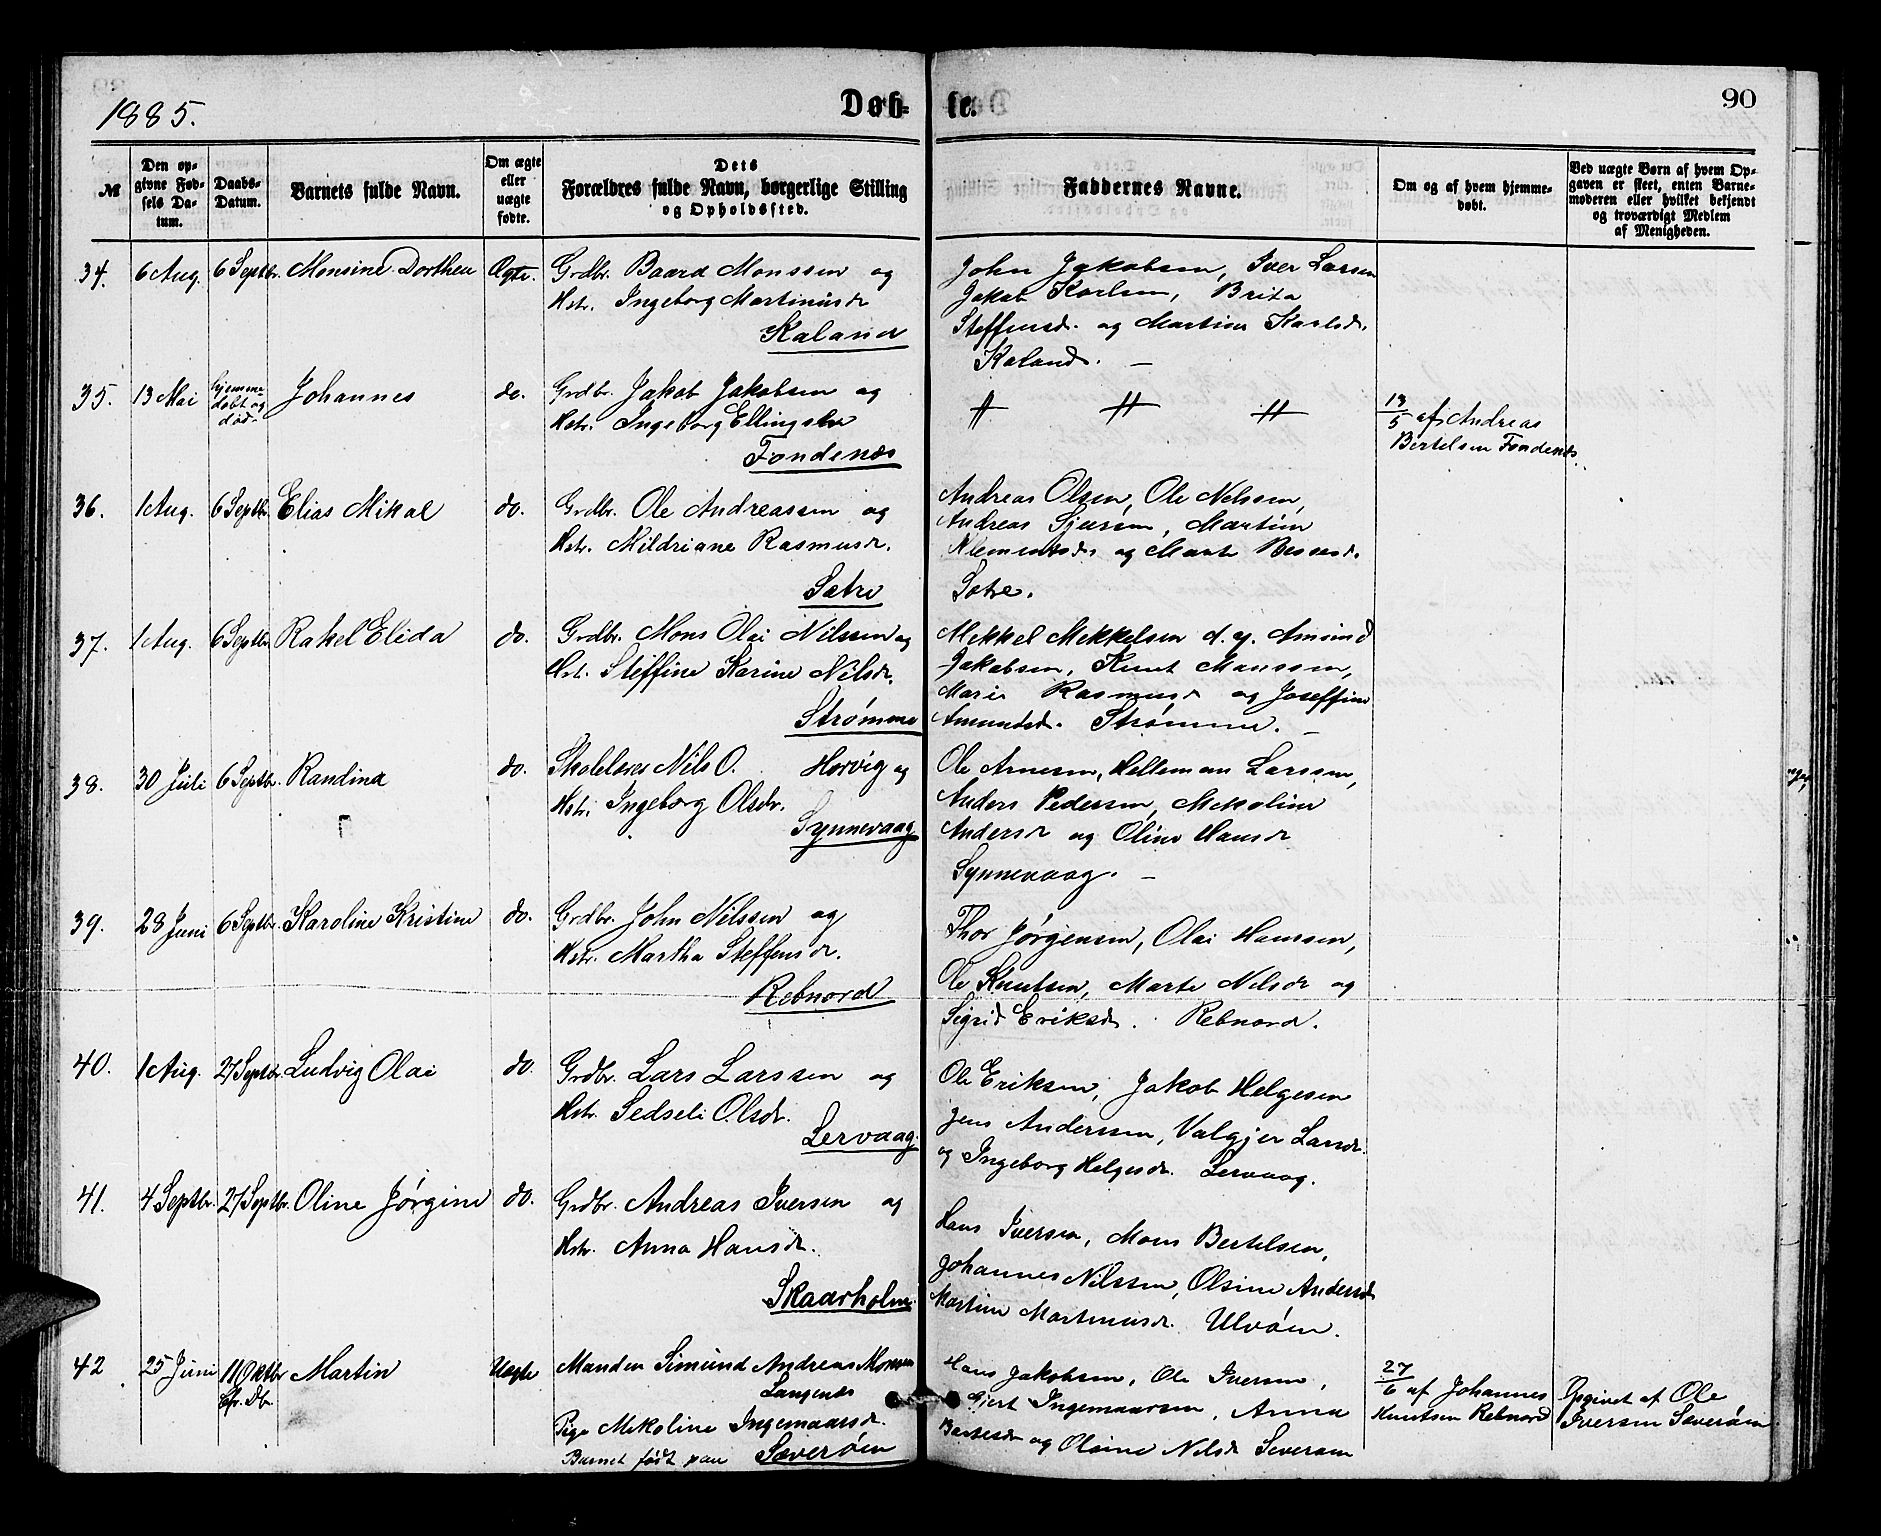 1885.
Døb-
te.
90
№
Den op-
givne Fød-
sels Da-
tum.
Daabs-
Datum.
Barnets fulde Navn.
Om ægte
eller
uægte
fødte.
Dets
Forældres fulde Navn, borgerlige Stilling
og Opholdssted.
Faddernes Navne.
Om og af hvem hjemme-
døbt.
Ved uægte Børn af hvem Op-
gaven er skeet, enten Barne-
moderen eller hvilket bekjendt
og troværdigt Medlem
af Menigheden.
34. 6 Aug. 6 Septbr. Monsine Dorthea Ægte. Grdbr. Baard Monssen og
Hstr. Ingeborg Martinusdr
Kaland
John Jakobsen, Iver Larsen
Jakob Karlsen, Brita
Steffensd. og Martine Karlsd.
Kaland. —
35. 13 Mai hjemme-
døbt og
død Johannes do. Grdbr. Jakob Jakobsen og
Hstr. Ingeborg Ellingsdr
Fondenæs
13/5 af Andreas
Bertelsen Fondenæs.
36. 1 Aug. 6 Septbr. Elias Mikal do. Grdbr. Ole Andreassen og
Hstr. Mildriane Rasmusdr.
Sætre
Andreas Olsen, Ole Nelssen,
Andreas Sjursen, Martine
Klementsdr og Marte Bessesd.
Sætre.
37. 1 Aug. 6 Septbr Rakel Elida do. Grdbr. Mons Olai Nilssen og
Hst. Steffine Karine Nilsdr.
Strømme
Mekkel Mekkelsen d. y. Amund
Jakobsen, Knut Monssen,
Marie Rasmusd og Joseffine
Amundsd. Strømme. —
38. 30 Juli 6 Septbr. Randina do. Skolelærer Nils O. Horvig og
Hstr. Ingeborg Olsdr.
Synnevaag
Ole Arnesen, Helleman Larssen,
Anders Pedersen, Mekoline
Andersdr og Oline Hansdr
Synnevaag. —
39. 28 Juni 6 Septbr. Karoline Kristine do. Grdbr. John Nilssen og
Hstr. Martha Steffensdr.
Rebnord
Thor Jørgensen, Olai Hanssen,
Ole Knutsen, Marte Nelsdr og
Sigrid Eriksd. Rebnord.
40. 1 Aug. 27 Septbr. Ludvig Olai do. Grdbr. Lars Larssen og
Hstr. Sedseli Olsdr.
Lervaag.
Ole Eriksen, Jakob Helgesen
Jens Anderssen, Valgjer Larsdr.
og Ingeborg Helgesdr. Lervaag.
41. 4 Septbr. 27 Septbr. Oline Jørgine do. Grdbr. Andreas Iversen og
Hstr. Anna Hansdr.
Skaarholm
Hans Iversen, Mons Bertelsen,
Johannes Nilssen, Olsine Andersd
Martine Martinusdr. Ulvøen.
42. 25 Juni 11 Oktbr
Cfr. Db. Martin Uægte Manden Simund Andreas Monsen
Langenæs
Pige Mekoline Ingemaarsdr.
Barnet født paa Sæverøen
Hans Jakobsen, Ole Iversen,
Gjert Ingemaarsen, Anna
og Olsine Nilsdr Severøen
27/6 af Johannes
Knutsen Rebnord
Opgivet af Ole
Iversen Sæverøen